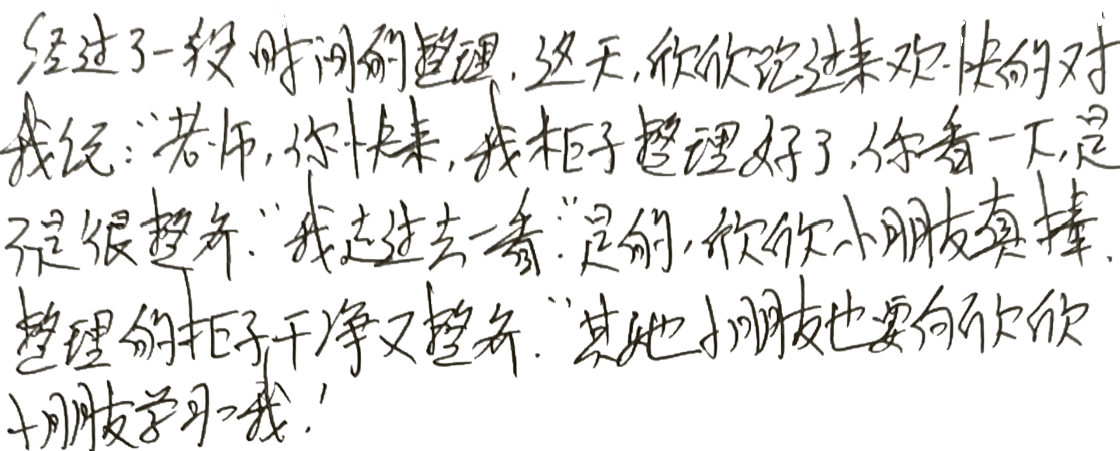 经过了一段时间的整理，这天，欣欣跑过来欢快的对
我说：“老师，你快来，我柜子整理好了，你看一下，是
不是很整齐.”我走过去一看：“是的，欣欣小朋友真棒，
整理的柜子干净又整齐.”其她小朋友也要向欣欣
小朋友学习哦！